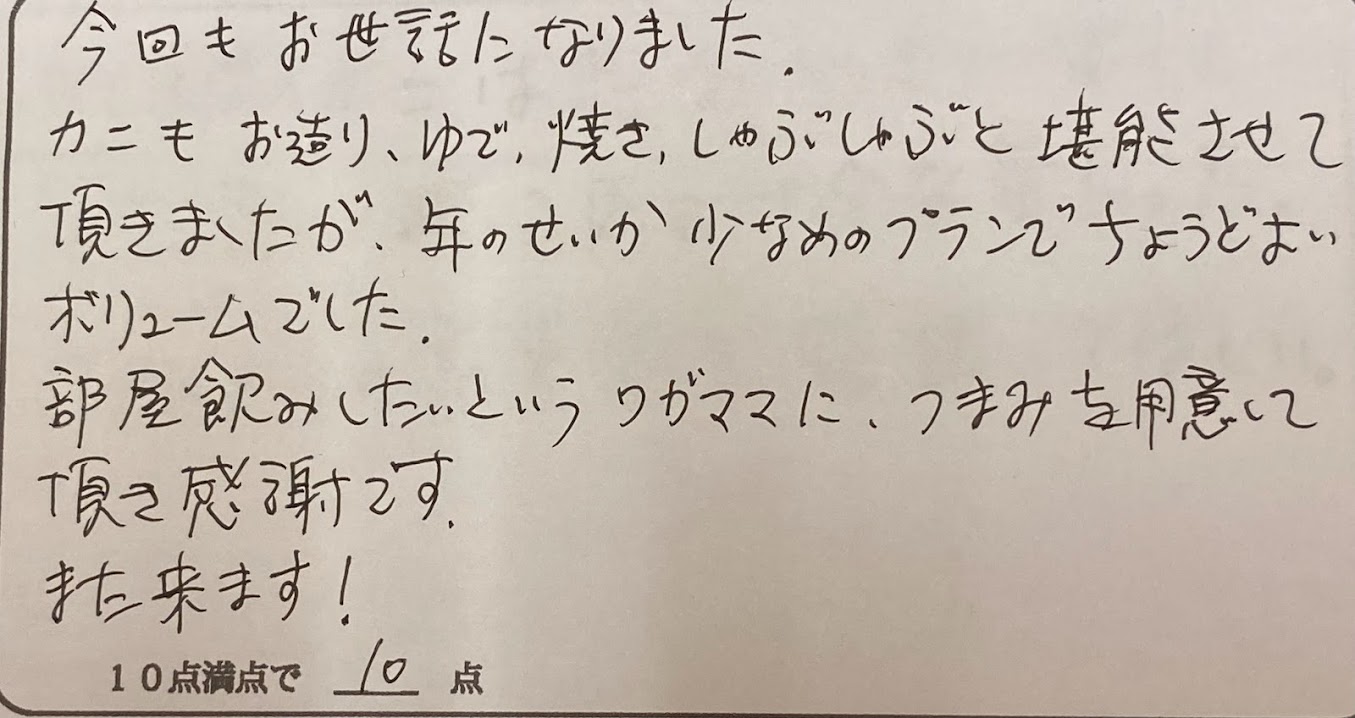 今回もお世話になりました.
カニもお造り、ゆで,焼き,しゃぶしゃぶと堪能させて
頂きましたが、年のせいか少なめのプランでちょうどよい
ボリュームでした.
部屋飲みしたいというワガママに、つまみを用意して
頂き感謝です.
また来ます!
10点満点で 10 点